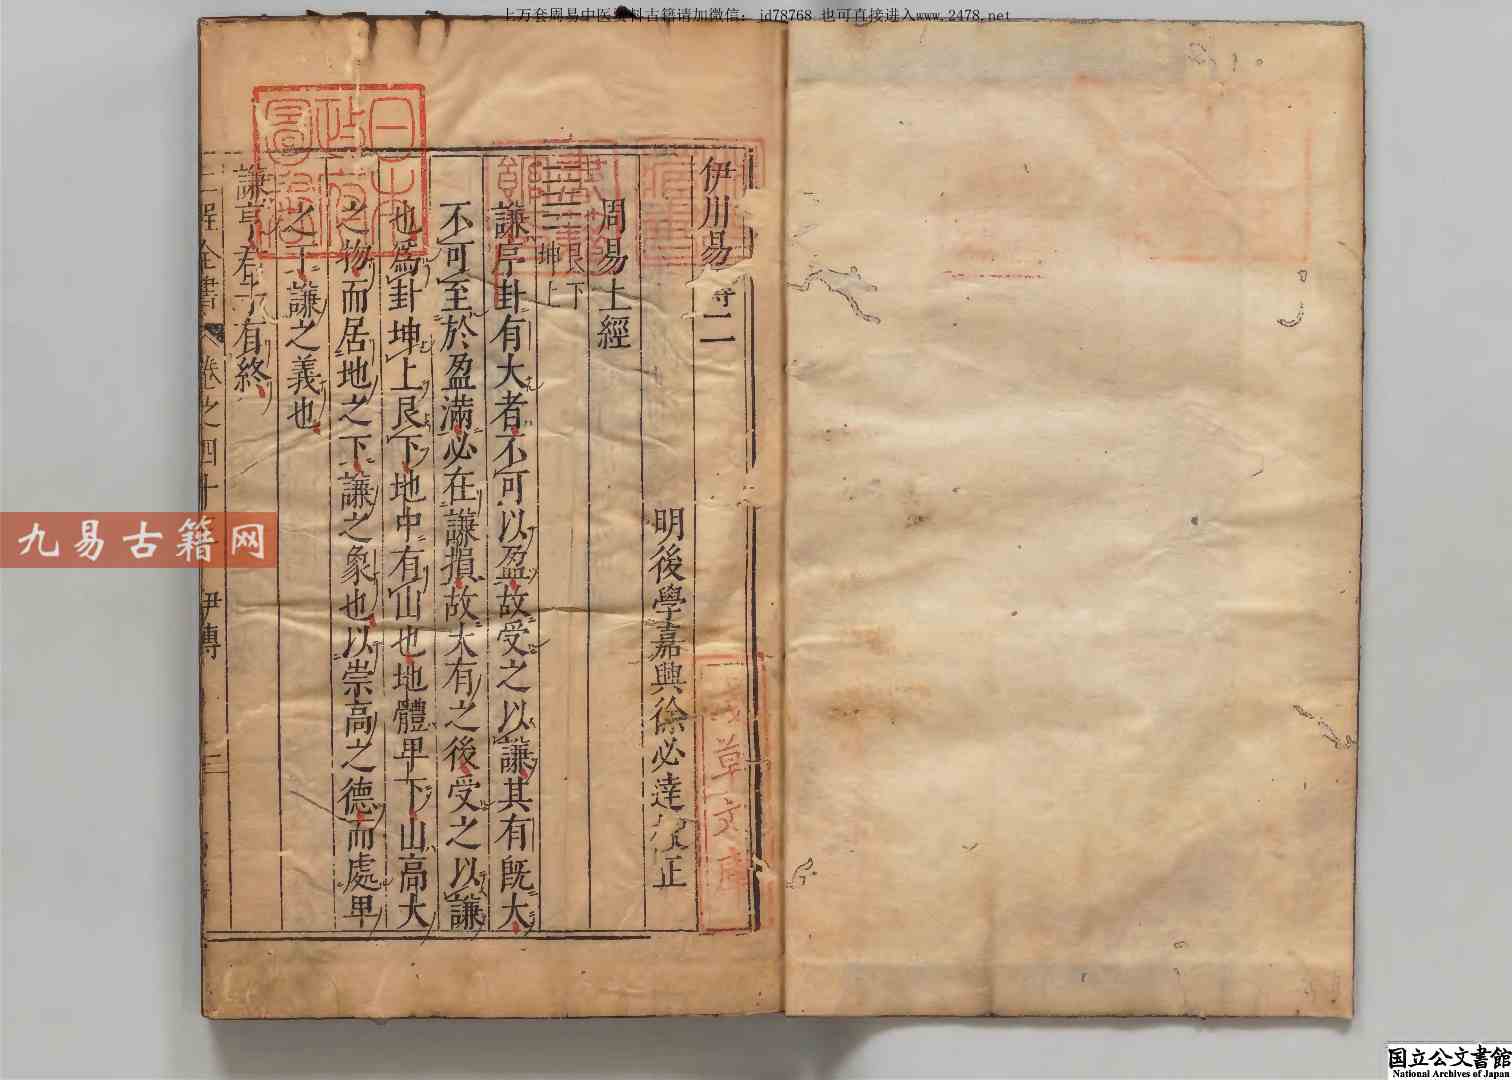 上万套周易中医资料古籍请加微信: jd78768 也可直接进入www.2478.net
伊川易傳二
明後學嘉興徐必達校正
周易上經
艮下
坤上
謙序卦有大者不可以盈故受之以謙其有旣大
不可至於盈滿必在謙損故大有之後受之以謙
也爲卦坤上艮下地中有山也地體卑下山高大
之物而居地之下謙之象也以崇高之德而處卑
之下謙之義也
謙亨君子有終
二程全書 卷之四十 伊傳
日本政府圖書
淺草文庫
九易古籍网
国立公文書館
National Archives of Japan